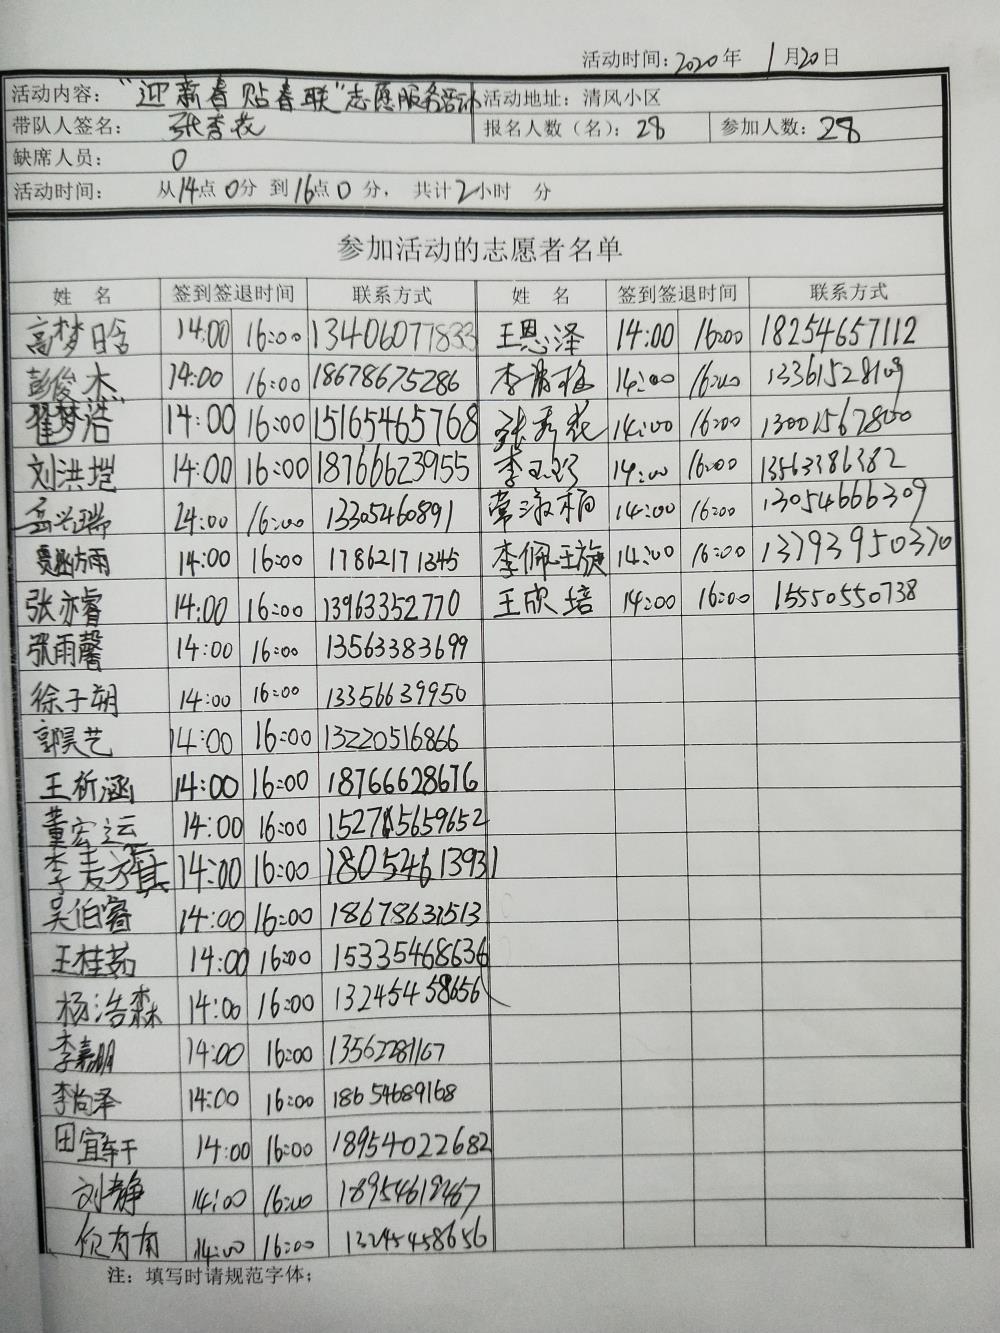 活动时间：2020年 1月20日
活动内容：“迎新春贴春联”志愿服务活动 活动地址：清风小区
带队人签名：张秀花 报名人数（名）：28 参加人数：28
缺席人员：0
活动时间：从14点0分 到16点0分， 共计2小时 分
参加活动的志愿者名单
姓名 签到签退时间 联系方式 姓名 签到签退时间 联系方式
高梦晗 14:00 16:00 13406077833 王恩泽 14:00 16:00 18254657112
彭俊杰 14:00 16:00 18678675286 李 14:00 16:00 13361528109
翟梦浩 14:00 16:00 15165465768 张秀花 14:00 16:00 13001567800
刘洪垲 14:00 16:00 18766623955 李玉珍 14:00 16:00 13563386382
孟兴瑞 14:00 16:00 13305460891 常淑梅 14:00 16:00 13054666309
14:00 16:00 17862171345 李佩璇 14:00 16:00 13793950370
张亦睿 14:00 16:00 13963352770 王欣培 14:00 16:00 15550550738
张雨馨 14:00 16:00 13563383699
徐子朝 14:00 16:00 13356639950
郭昊艺 14:00 16:00 13220516866
王析涵 14:00 16:00 18766628676
董宏运 14:00 16:00
李麦淇 14:00 16:00 18054613931
吴伯睿 14:00 16:00 18678631513
王桂茹 14:00 16:00 15335468636
杨浩森 14:00 16:00 13245458656
李嘉鹏 14:00 16:00 13562281167
李尚泽 14:00 16:00 18654689168
田宜轩 14:00 16:00 18954022682
刘静 14:00 16:00 18954619467
14:00 16:00 13245458656
注：填写时请规范字体；